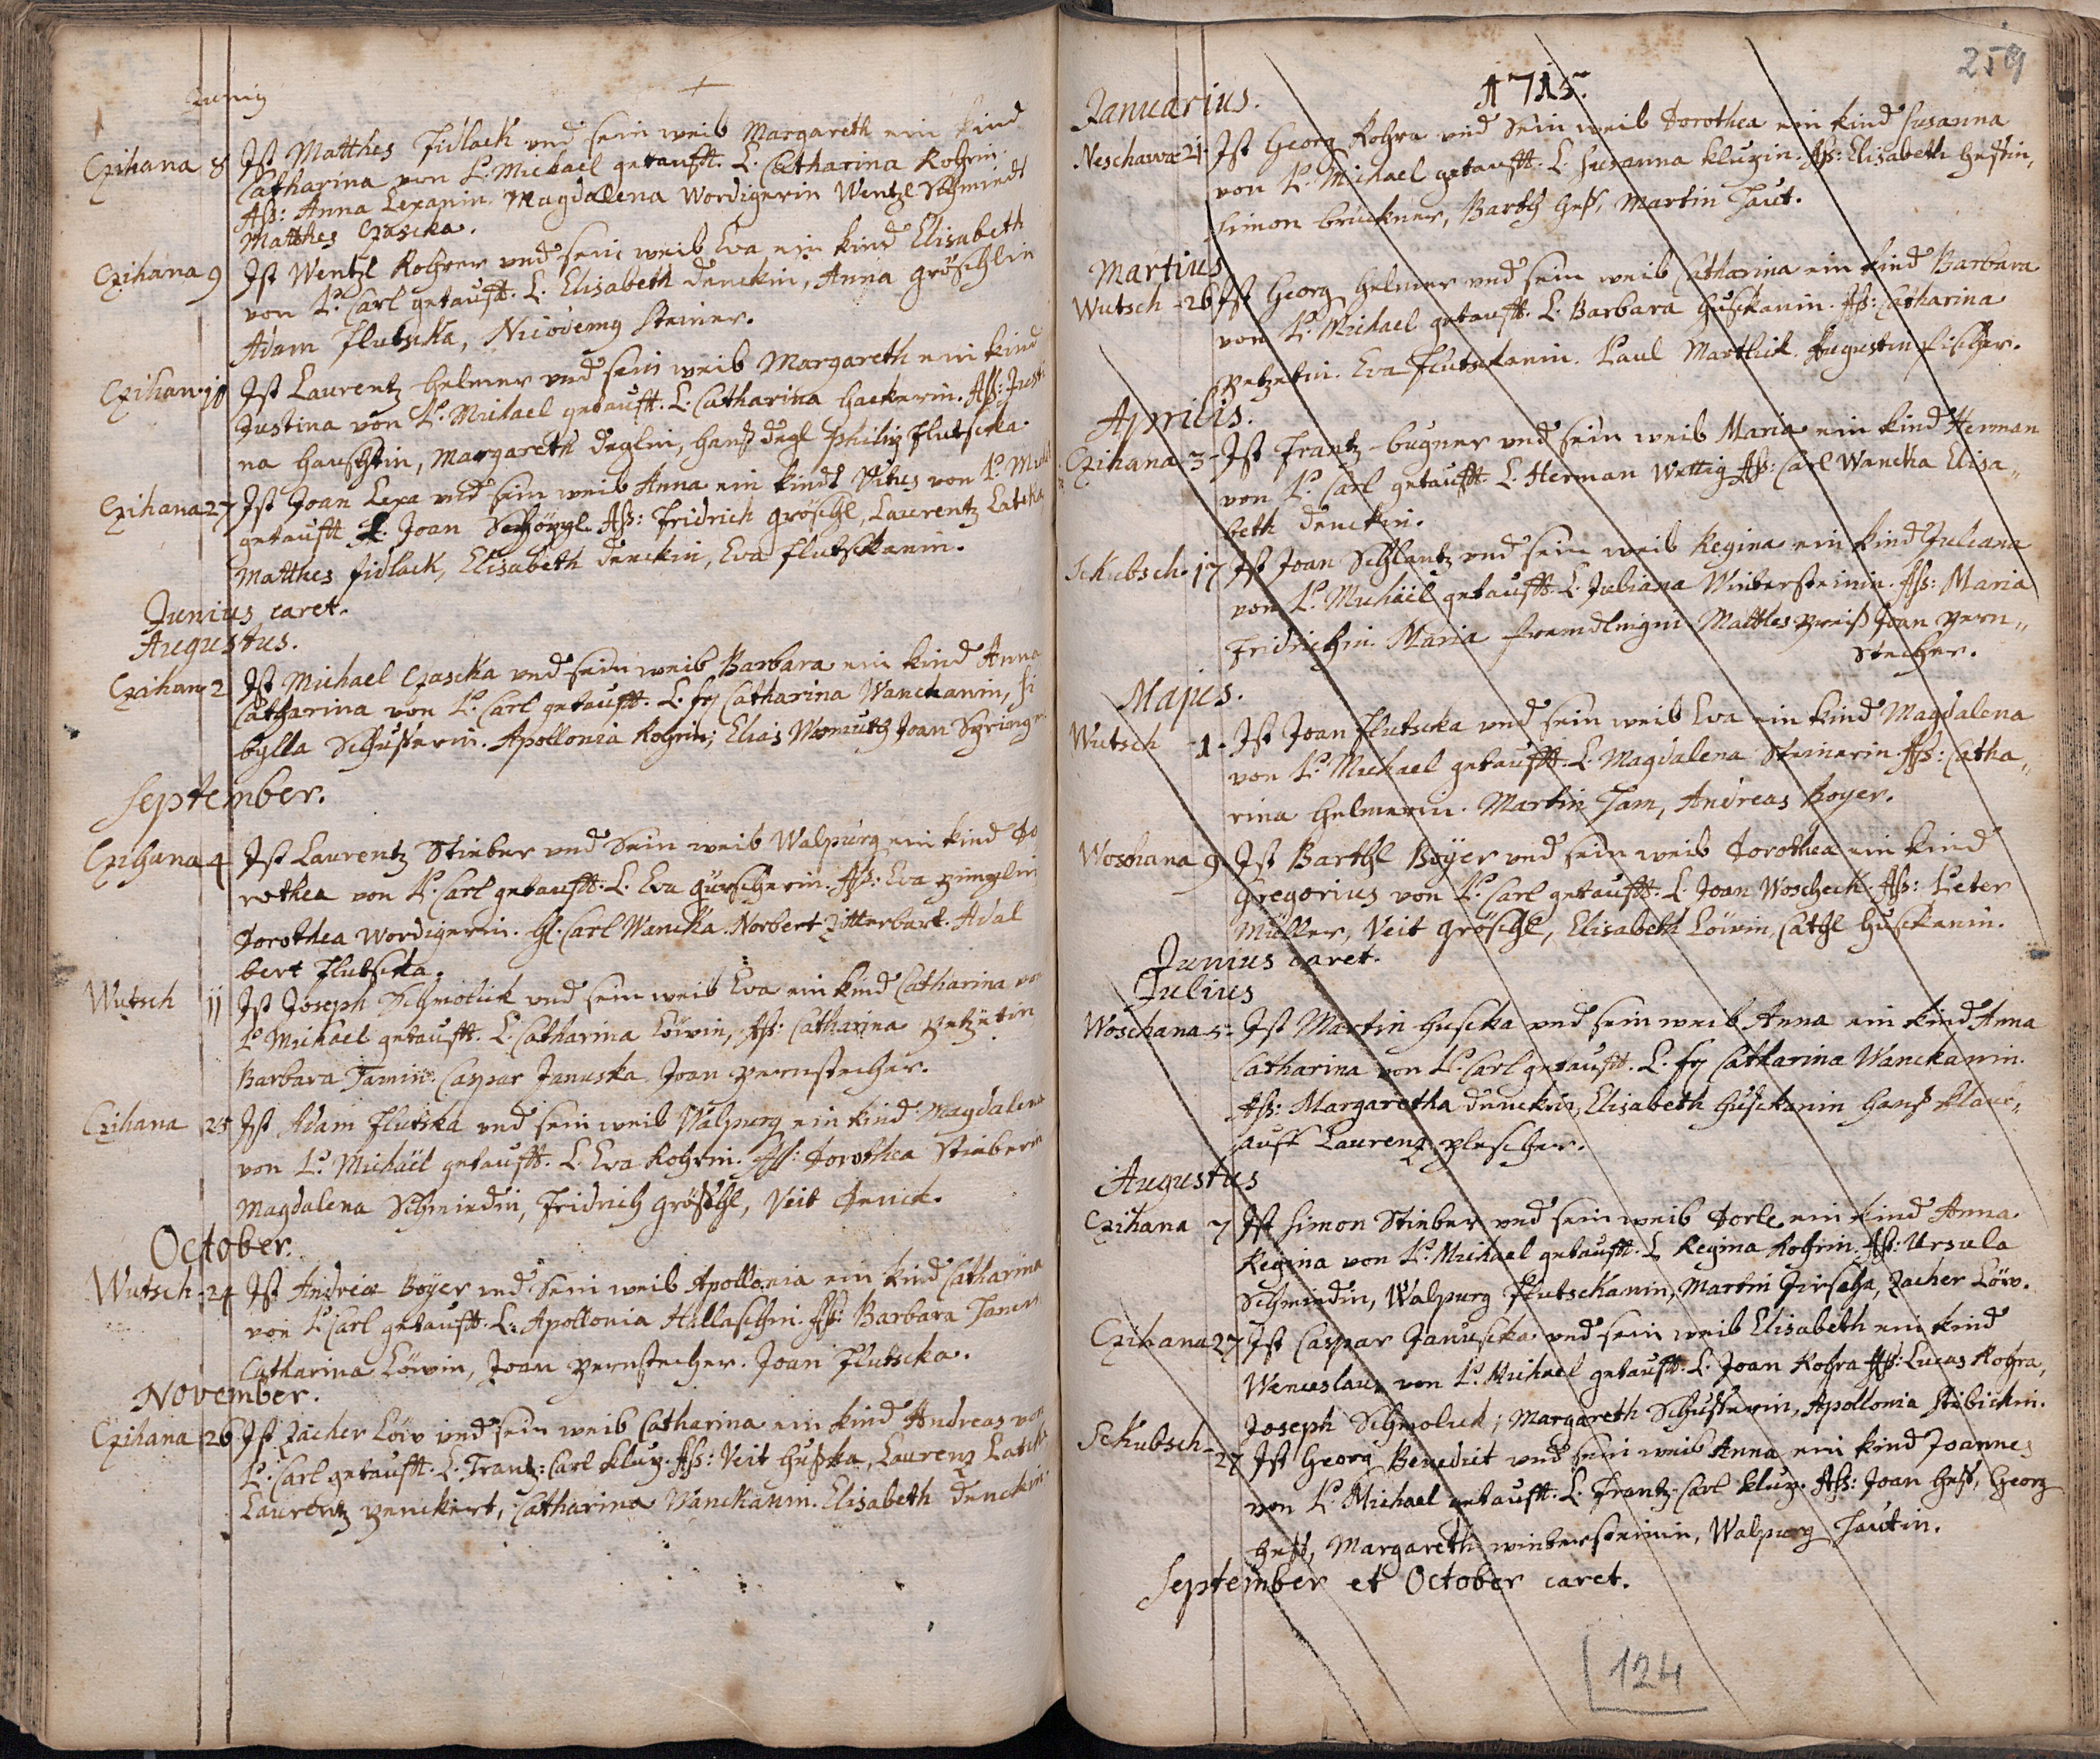 Juniy
Czihana 8 Ist Matthes Fidlack vnd sein weib Margareth ein kind
Catharina von P. Michael getaufft. L. Catharina Rohrin
Ass: Anna Lexanin. Magdalena Wordigerin Wentzl Schmiedt
Matthes Czascka.
Czihana 9 Ist Wentzl Rohrer vnd sein weib Eva ein kind Elisabeth
von P. Carl getaufft. L. Elisabeth denckin, Anna gröschlin
Adam Flutscka, Nicodemy Steiner.
Czihan 10 Ist Laurentz helmer vnd sein weib Margareth ein kind
Justina von P. Michael getaufft. L. Catharina hackerin. Ass: Justi
na hauschtin, Margareth deglin, hanß degl Philip Flutscka.
Czihana 27 Ist Joan Lexa vnd sein weib Anna ein kindt Vitus von P. Michl
getaufft L. Joan Schöppl. Ass: Fridrich gröschl, Laurentz Latska
Matthes fidlack, Elisabeth denckin, Eva flutsckanin.
Junius caret.
Augustus.
Czihan 2 Ist Michael Czascka vnd sein weib Barbara ein kind Anna
Catharina von P. Carl getaufft. L. fr Catharina Wanckanin, Si
bylla Schusterin. Apollonia Rohrin; Elias Wormuth Joan
September.
Czihana 4 Ist Laurentz Stieber vnd Sein weib Walpurg ein kind Do
rothea von P. Carl getaufft. L. Eva gürscherin. Ass: Eva
Dorothea Wordigerin. H. Carl Wancka. Norbert Zitterbart. Adal
bert Flutscka.
Wutsch 11 Ist Joseph Schmolick vnd sein weib Eva ein kind Catharina von
P. Michael getaufft. L. Catharina Löwin, Ass: Catharina Petzeltin
Barbara Tamin. Caspar Januska Joan pernstecher.
Czihana 25 Ist Adam Flutska vnd sein weib Walpurg ein kind Magdalena
von P. Michäel getaufft. L. Eva Rohrin. Ass: Dorothea Stieberin
Magdalena Schmiedin, Fridrich gröschl, Veit Denck.
October.
Wutsch 24 Ist Andreæ Boÿer vnd Sein weib Apollonia ein kind Catharina
von P. Carl getaufft. L. Apollonia Hallaschin. Ass: Barbara
Catharina Löwin, Joan pernstecher. Joan Flutscka.
November.
Czihana 26 Ist Zacher Löw vnd sein weib Catharina ein kind Andreas von
P. Carl getaufft. L. Frantz: Carl Klug. Ass: Veit Huska, Laurenz Latcka
Laurentz penckert, Catharina Wanckanin. Elisabeth denckin.
259
1715.
Januarius.
Neschawa 21 Ist Georg Rohra vnd Sein weib Dorothea ein kind Susanna
von P. Michael getaufft. L. Susanna Klugin. Ass: Elisabeth hessin,
Simon brückner, Barth hess, Martin Haut.
Martius
Wutsch 26 Ist Georg helmer vnd sein weib Catharina ein kind Barbara
von P. Michael getaufft. L. Barbara husckanin. Ass: Catharina
petzeltin. Eva Flutsckanin. Paul Marthick. Augustin fischer.
Aprilis.
Czihana 3 Ist Frantz bugner vnd sein weib Maria ein kind Herman
von P. Carl getaufft. L. Herman Wettig Ass: Carl Wancka Elisa„
beth denckin.
Sckubsch 17 Ist Joan Schlantz vnd sein weib Regina ein kind Juliana
von P. Michäel getaufft. L. Juliana Wintersteinin. Ass: Maria
Fridrichin. Maria fremdlingin. Matthes preiß Joan pern„
stecher.
Majus.
Wutsch 1 Ist Joan Flutscka vnd sein weib Eva ein kind Magdalena
von P. Michael getaufft. L. Magdalena Steinerin. Ass: Catha„
rina helmerin. Martin Tam, Andreas Boyer.
Woschana 9 Ist Barthl Boÿer vnd sein weib Dorothea ein kind
Gregorius von P. Carl getaufft. L. Joan Woscheck. Ass: Peter
Müller, Veit Gröschl, Elisabeth Löwin, Cathl husckanin.
Junius caret.
Julius
Woschana 5 Ist Martin huscka vnd sein weib Anna ein kind Anna
Catharina von P. Carl getaufft. L. fr Catharina Wanckanin.
Ass: Margaretha denckin, Elisabeth husckanin hanß klau„
auff Laurenz plescher.
Augustus
Czihana 7 Ist Simon Stieber vnd sein weib Dorle ein kind Anna
Regina von P. Michael getaufft. L. Regina Rohrin. Ass: Ursula
Schmiedin, Walpurg Flutsckanin, Martin Girscha, Zacher Löw.
Czihana 27 Ist Caspar Januscka vnd sein weib Elisabeth ein kind
Wenceslaus von P. Michael getaufft. L. Joan Rohra Ass: Lucas Rohra,
Joseph Schmolick, Margareth Schusterin, Apollonia Stibickin.
Sckubsch 27 Ist Georg Benedict vnd sein weib Anna ein kind Joannes
von P. Michael getaufft. L. Frantz Carl Klug. Ass: Joan hess, Georg
hess, Margareth wintersteinin, Walpurg Hautin.
September et October caret.
124